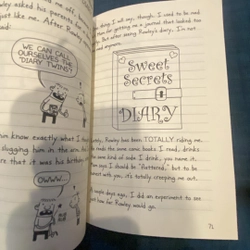 me off,
owley asked his parents for
just like me. After Rowley
aid:
WE CAN CALL
OURSELVES THE
"DIARY TWINS"!
know exactly what I th
slugging him in the arm.
that it was his
OWWW..
thing, I will say, though, I used to be mad
Mom for getting me a journal that looked too
But after seeing Rowley's diary, I'm not
anymore.
Sweet
Secrets
DIARY
Rowley has been TOTALLY riding me.
reads the same comic books I read, drinks
same kind of soda I drink, you name it.
Mom says I should be "flattered," but to be
honest with you, it's totally creeping me out.
couple days ago, I did an experiment to see
just how far Rowley would go.
71